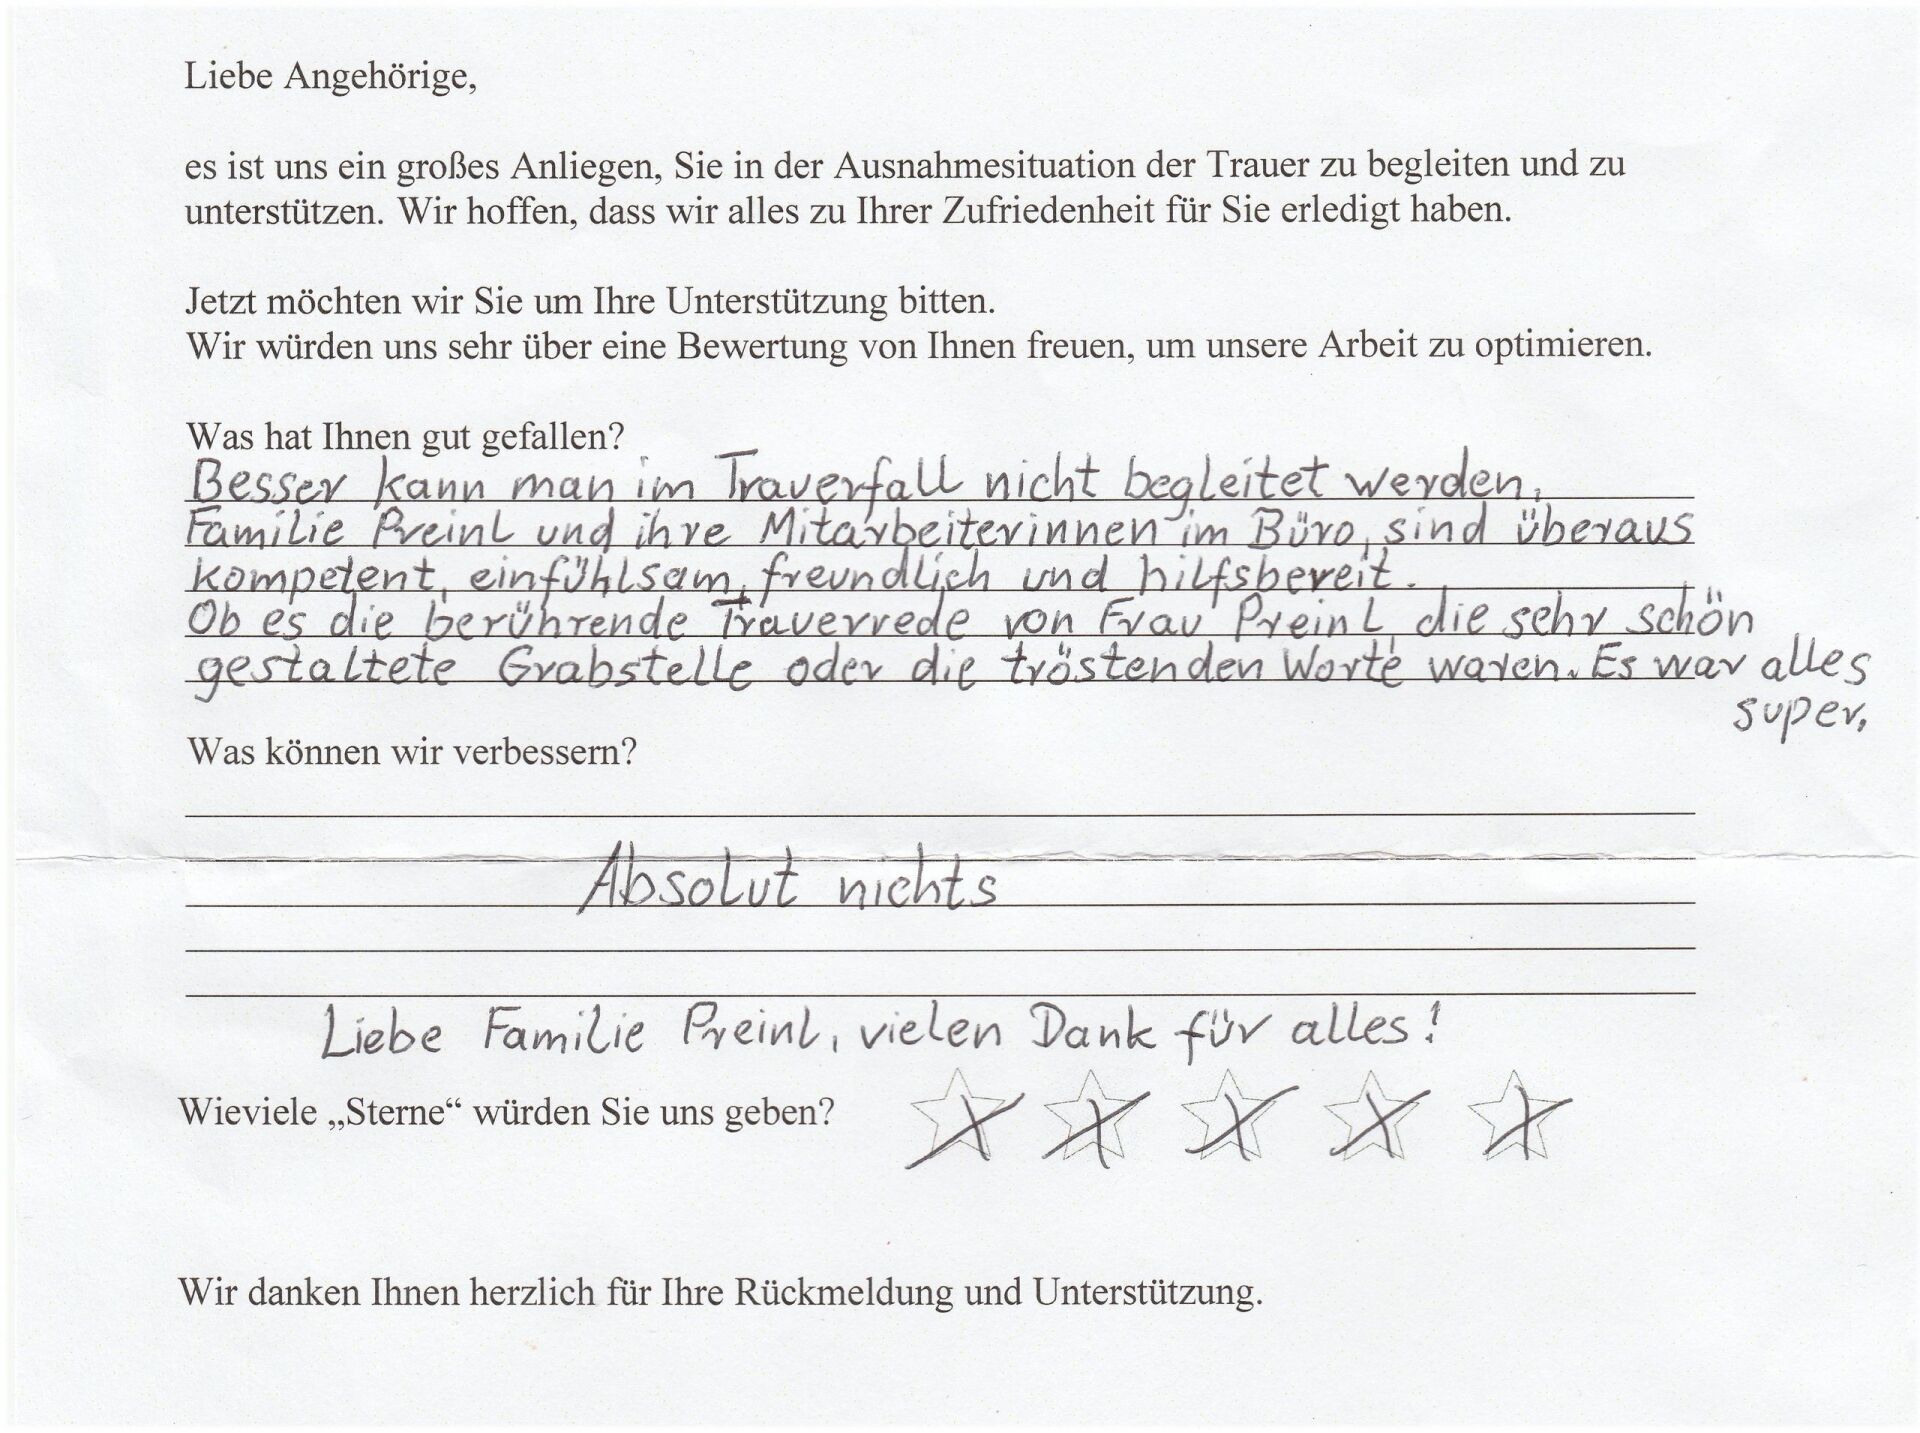 Liebe Angehörige,
es ist uns ein großes Anliegen, Sie in der Ausnahmesituation der Trauer zu begleiten und zu
unterstützen. Wir hoffen, dass wir alles zu Ihrer Zufriedenheit für Sie erledigt haben.
Jetzt möchten wir Sie um Ihre Unterstützung bitten.
Wir würden uns sehr über eine Bewertung von Ihnen freuen, um unsere Arbeit zu optimieren.
Was hat Ihnen gut gefallen?
Besser kann man im Trauerfall nicht begleitet werden.
Familie Preinl und ihre Mitarbeiterinnen im Büro, sind überaus
kompetent, einfühlsam, freundlich und hilfsbereit.
Ob es die berührende Trauerrede von Frau Preinl, die sehr schön
gestaltete Grabstelle oder die tröstenden Worte waren. Es war alles
super.
Was können wir verbessern?
Absolut nichts
Liebe Familie Preinl, vielen Dank für alles!
Wieviele „Sterne“ würden Sie uns geben?
Wir danken Ihnen herzlich für Ihre Rückmeldung und Unterstützung.